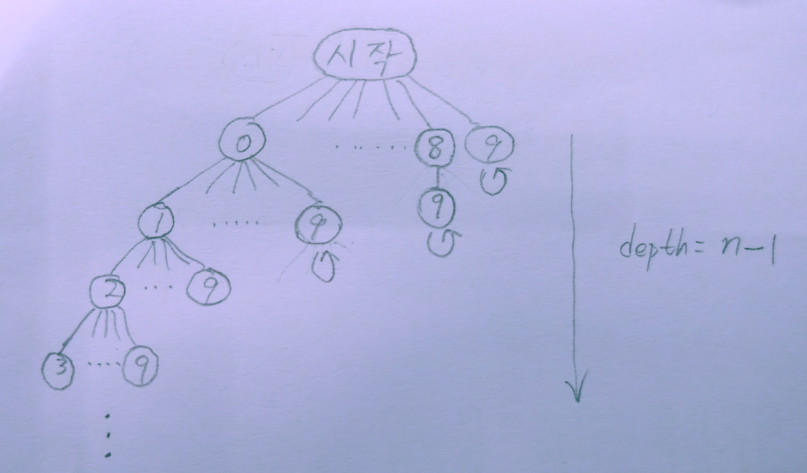 시작
0 ...... 8 9
1 ..... 9 9
2 ... 9
3 .... 9
depth = n-1